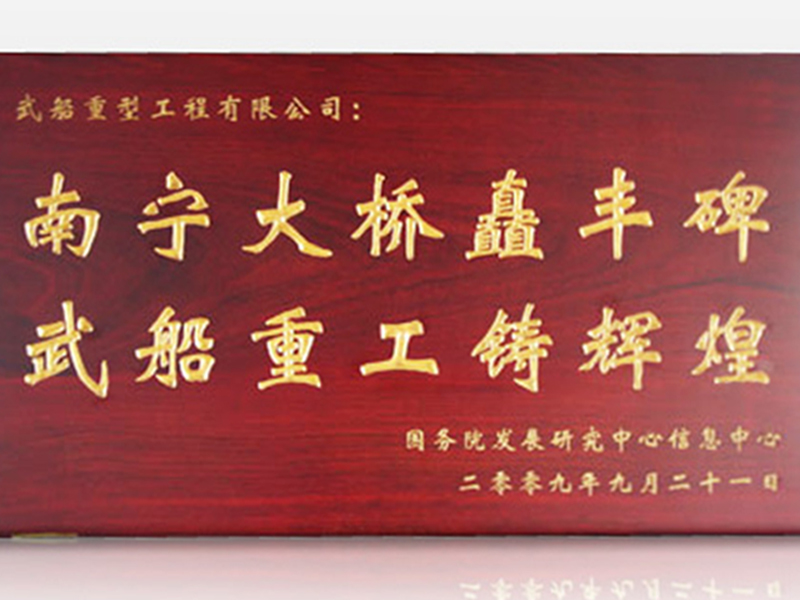 武船重型工程有限公司：
南宁大桥矗丰碑
武船重工铸辉煌
国务院发展研究中心信息中心
二零零九年九月二十一日